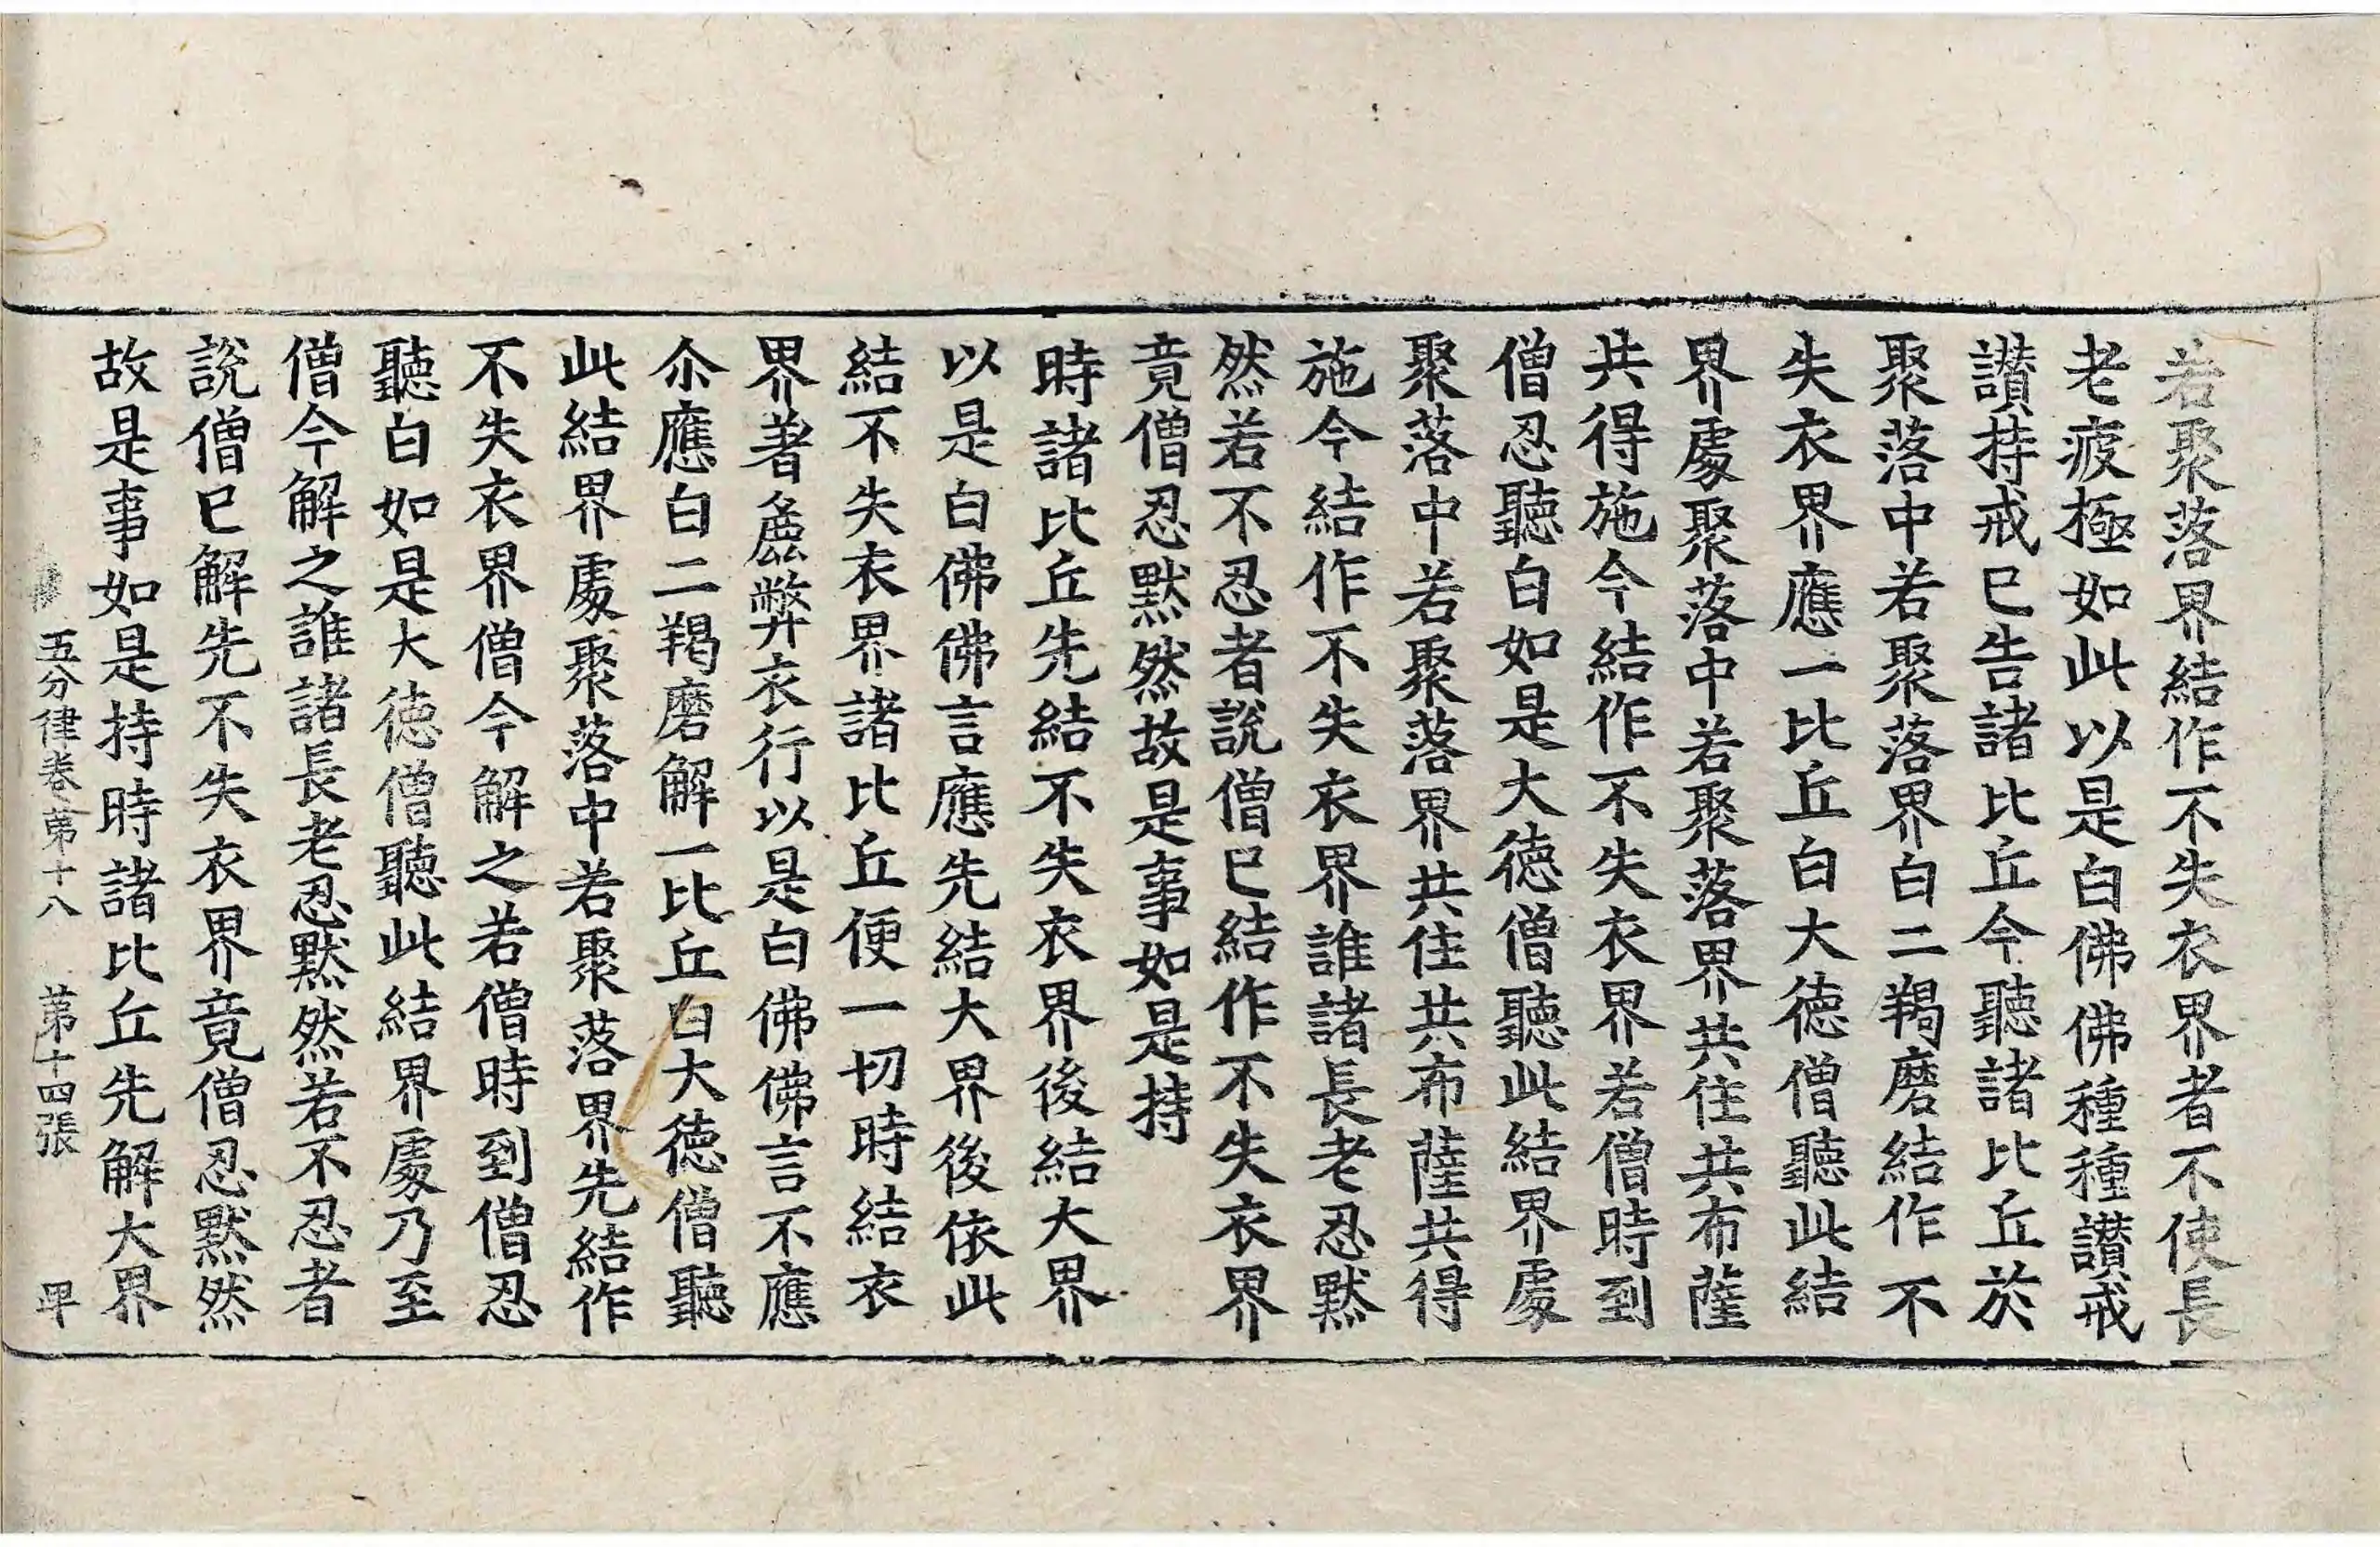 若聚落界結作不失衣界者不使長
老疲極如此以是白佛佛種種讃戒
讃持戒已告諸比丘今聽諸比丘於
聚落中若聚落界白二羯磨結作不
失衣界應一比丘白大德僧聽此結
界處聚落中若聚落界共住共布薩
共得施今結作不失衣界若僧時到
僧忍聽白如是大德僧聽此結界處
聚落中若聚落界共住共布薩共得
施今結作不失衣界誰諸長老忍默
然若不忍者說僧已結作不失衣界
竟僧忍默然故是事如是持
時諸比丘先結不失衣界後結大界
以是白佛佛言應先結大界後依此
結不失衣界諸比丘便一切時結衣
界著麁弊衣行以是白佛佛言不應
尒應白二羯磨解一比丘白大德僧聽
此結界處聚落中若聚落界先結作
不失衣界僧今解之若僧時到僧忍
聽白如是大德僧聽此結界處乃至
僧今解之誰諸長老忍默然若不忍者
說僧已解先不失衣界竟僧忍默然
故是事如是持時諸比丘先解大界
五分律卷第十八 第十四張